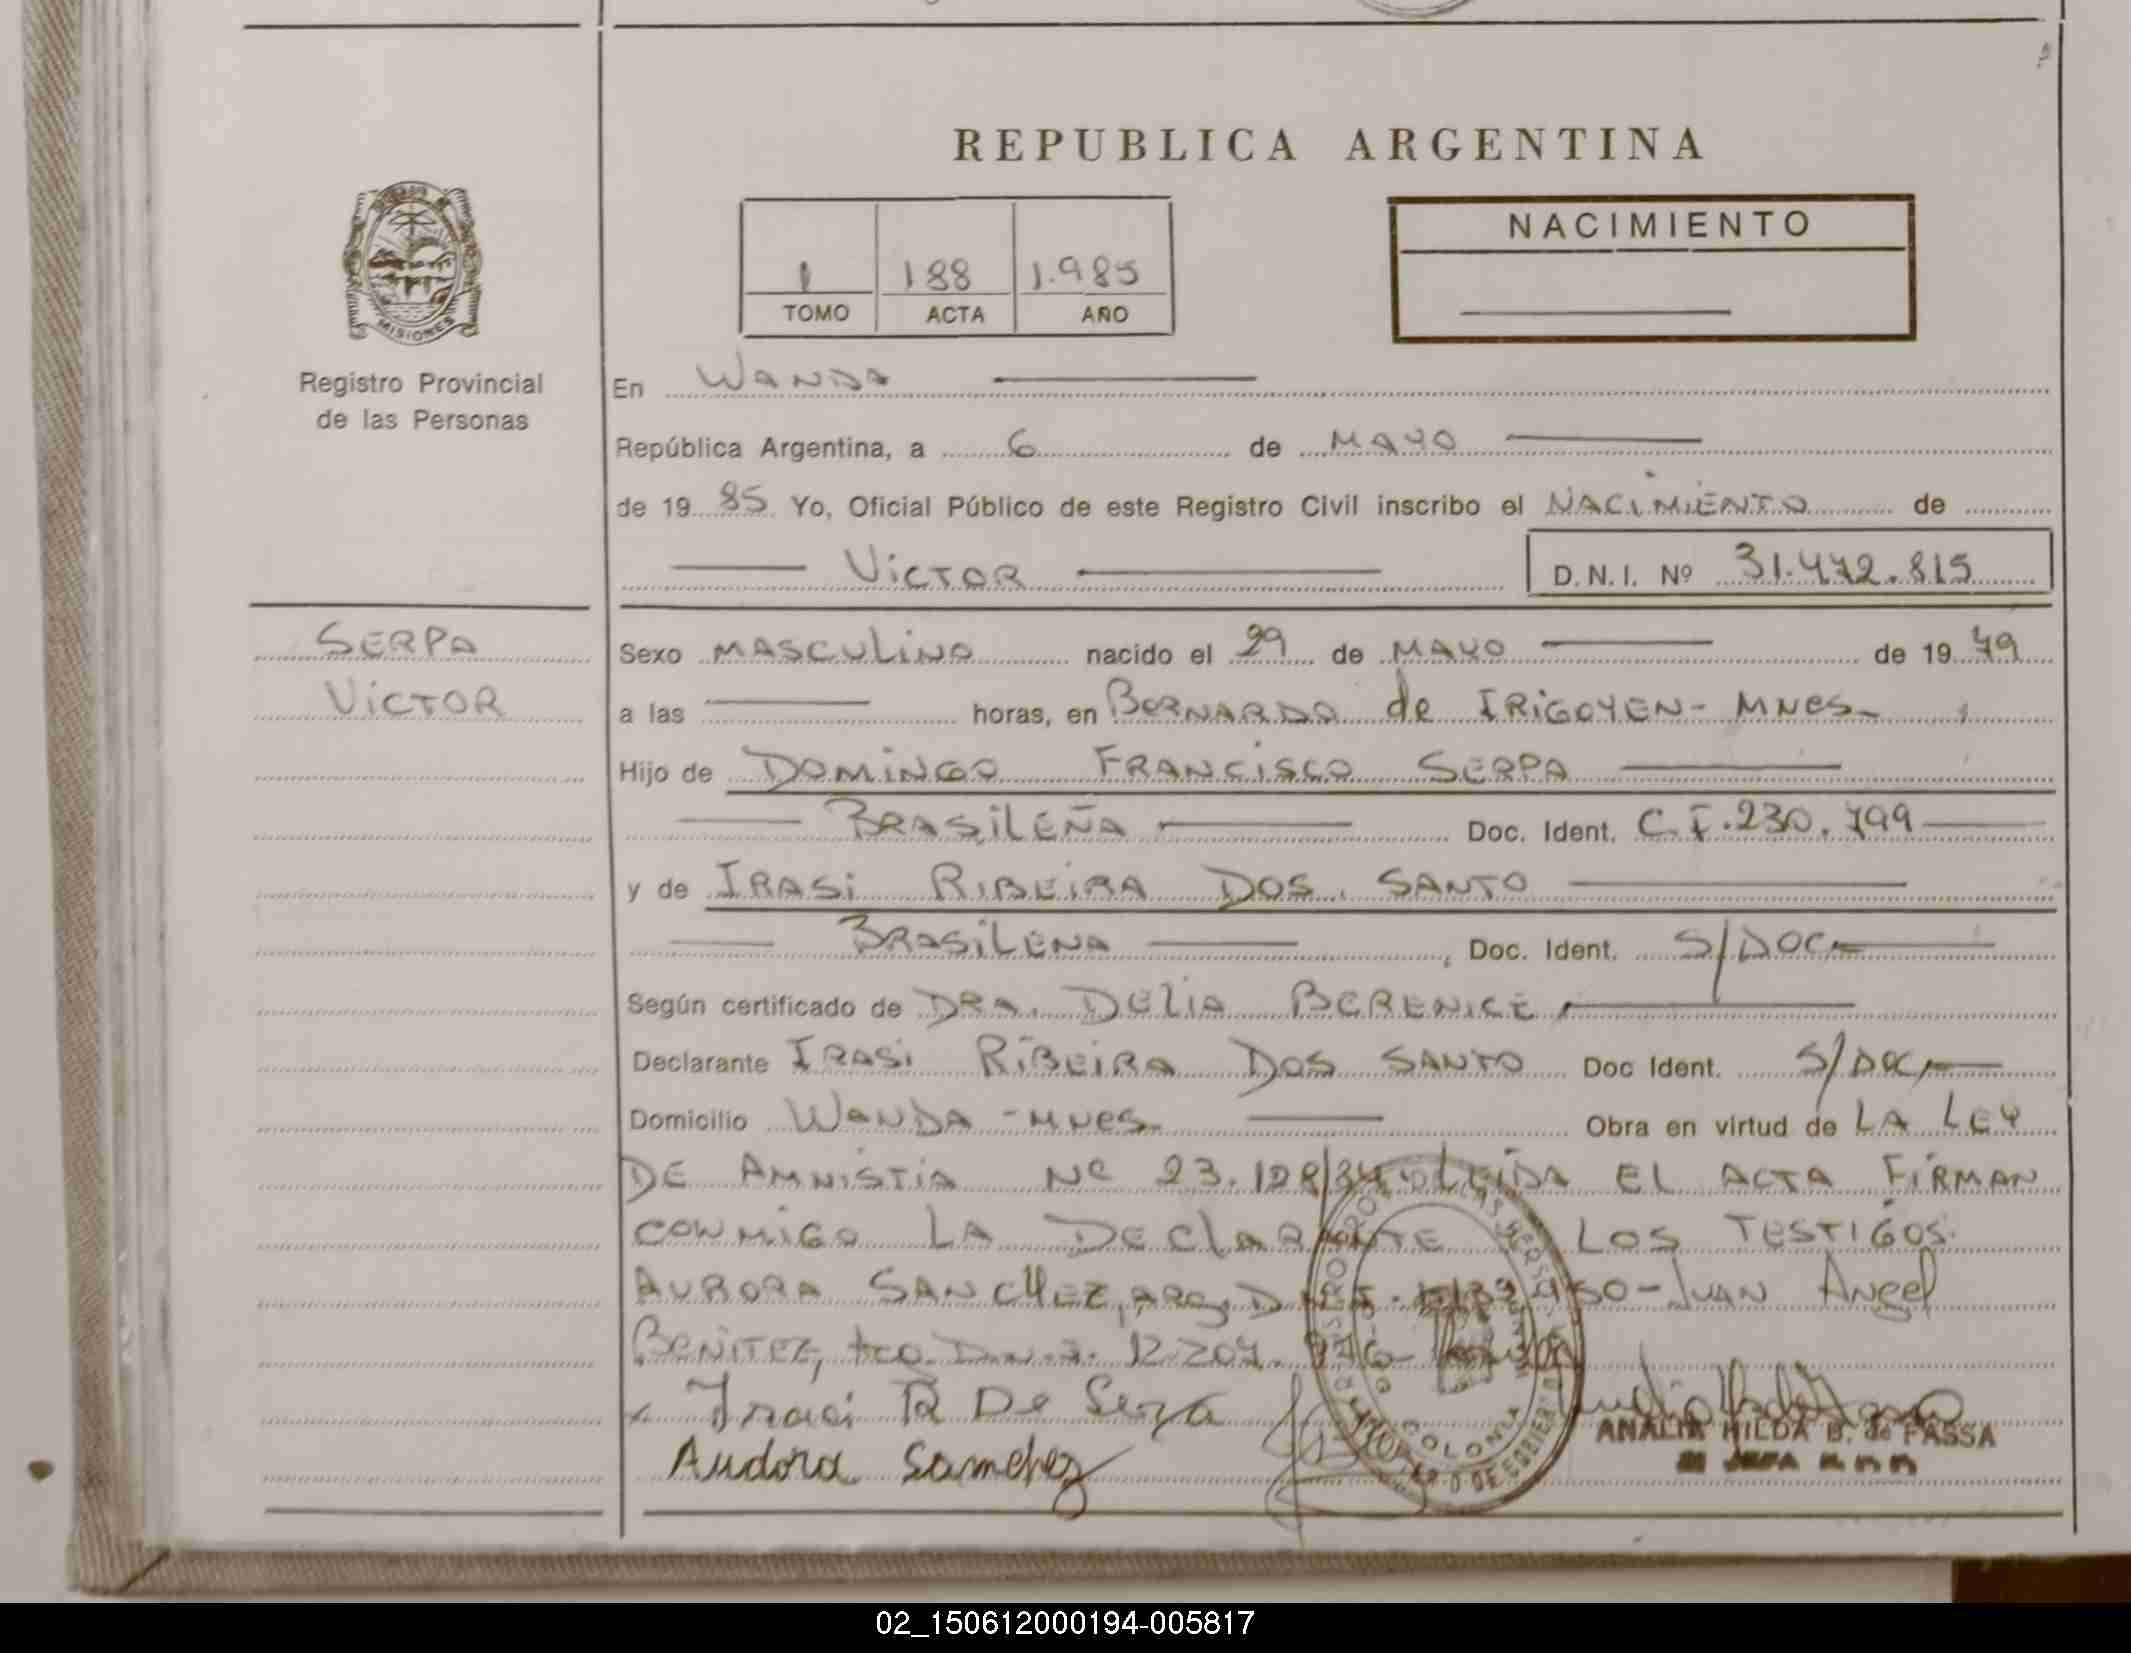 REPUBLICA ARGENTINA
NACIMIENTO
1 188 1.985
TOMO ACTA AÑO
MISIONES
Registro Provincial
de las Personas
En WANDA
República Argentina, a 6 de MAYO
de 19 85 Yo, Oficial Público de este Registro Civil inscribo el NACIMIENTO de
VICTOR
D.N.I. Nº 31.472.815
SERPA
VICTOR
Sexo MASCULINO nacido el 29 de MAYO de 19 79
a las horas, en BERNARDO de IRIGOYEN - MNES
Hijo de DOMINGO FRANCISCO SERPA
BRASILEÑA Doc. Ident. C.I. 230.799
y de IRASI RIBEIRA DOS SANTO
BRASILENA, Doc. Ident. S/DOC
Según certificado de DRA. DELIA BERENICE
Declarante IRASI RIBEIRA DOS SANTO Doc Ident. S/DOC
Domicilio WANDA - MNES Obra en virtud de LA LEY
DE AMNISTIA Nº 23.128/84 LEIDA EL ACTA FIRMAN
CONMIGO LA DECLARANTE LOS TESTIGOS
AURORA SANCHEZ, ARG, - JUAN ANGEL
BENITEZ, D.N.I. 12.207.
x Iraci R De Serpa
Audora Samchez
ANALIA HILDA B. de FASSA
02_150612000194-005817